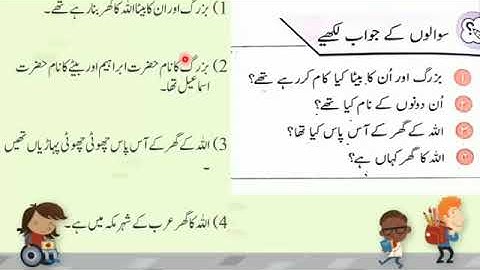 سوالوں کے جواب لکھیے
۱ بزرگ اور اُن کا بیٹا کیا کام کر رہے تھے؟
۲ اُن دونوں کے نام کیا تھے؟
۳ اللہ کے گھر کے آس پاس کیا تھا؟
۴ اللہ کا گھر کہاں ہے؟
1) بزرگ اور ان کا بیٹا اللہ کا گھر بنا رہے تھے۔
2) بزرگ کا نام حضرت ابراہیم اور بیٹے کا نام حضرت
اسماعیل تھا۔
3) اللہ کے گھر کے آس پاس چھوٹی چھوٹی پہاڑیاں تھیں
۔
4) اللہ کا گھر عرب کے شہر مکہ میں ہے۔